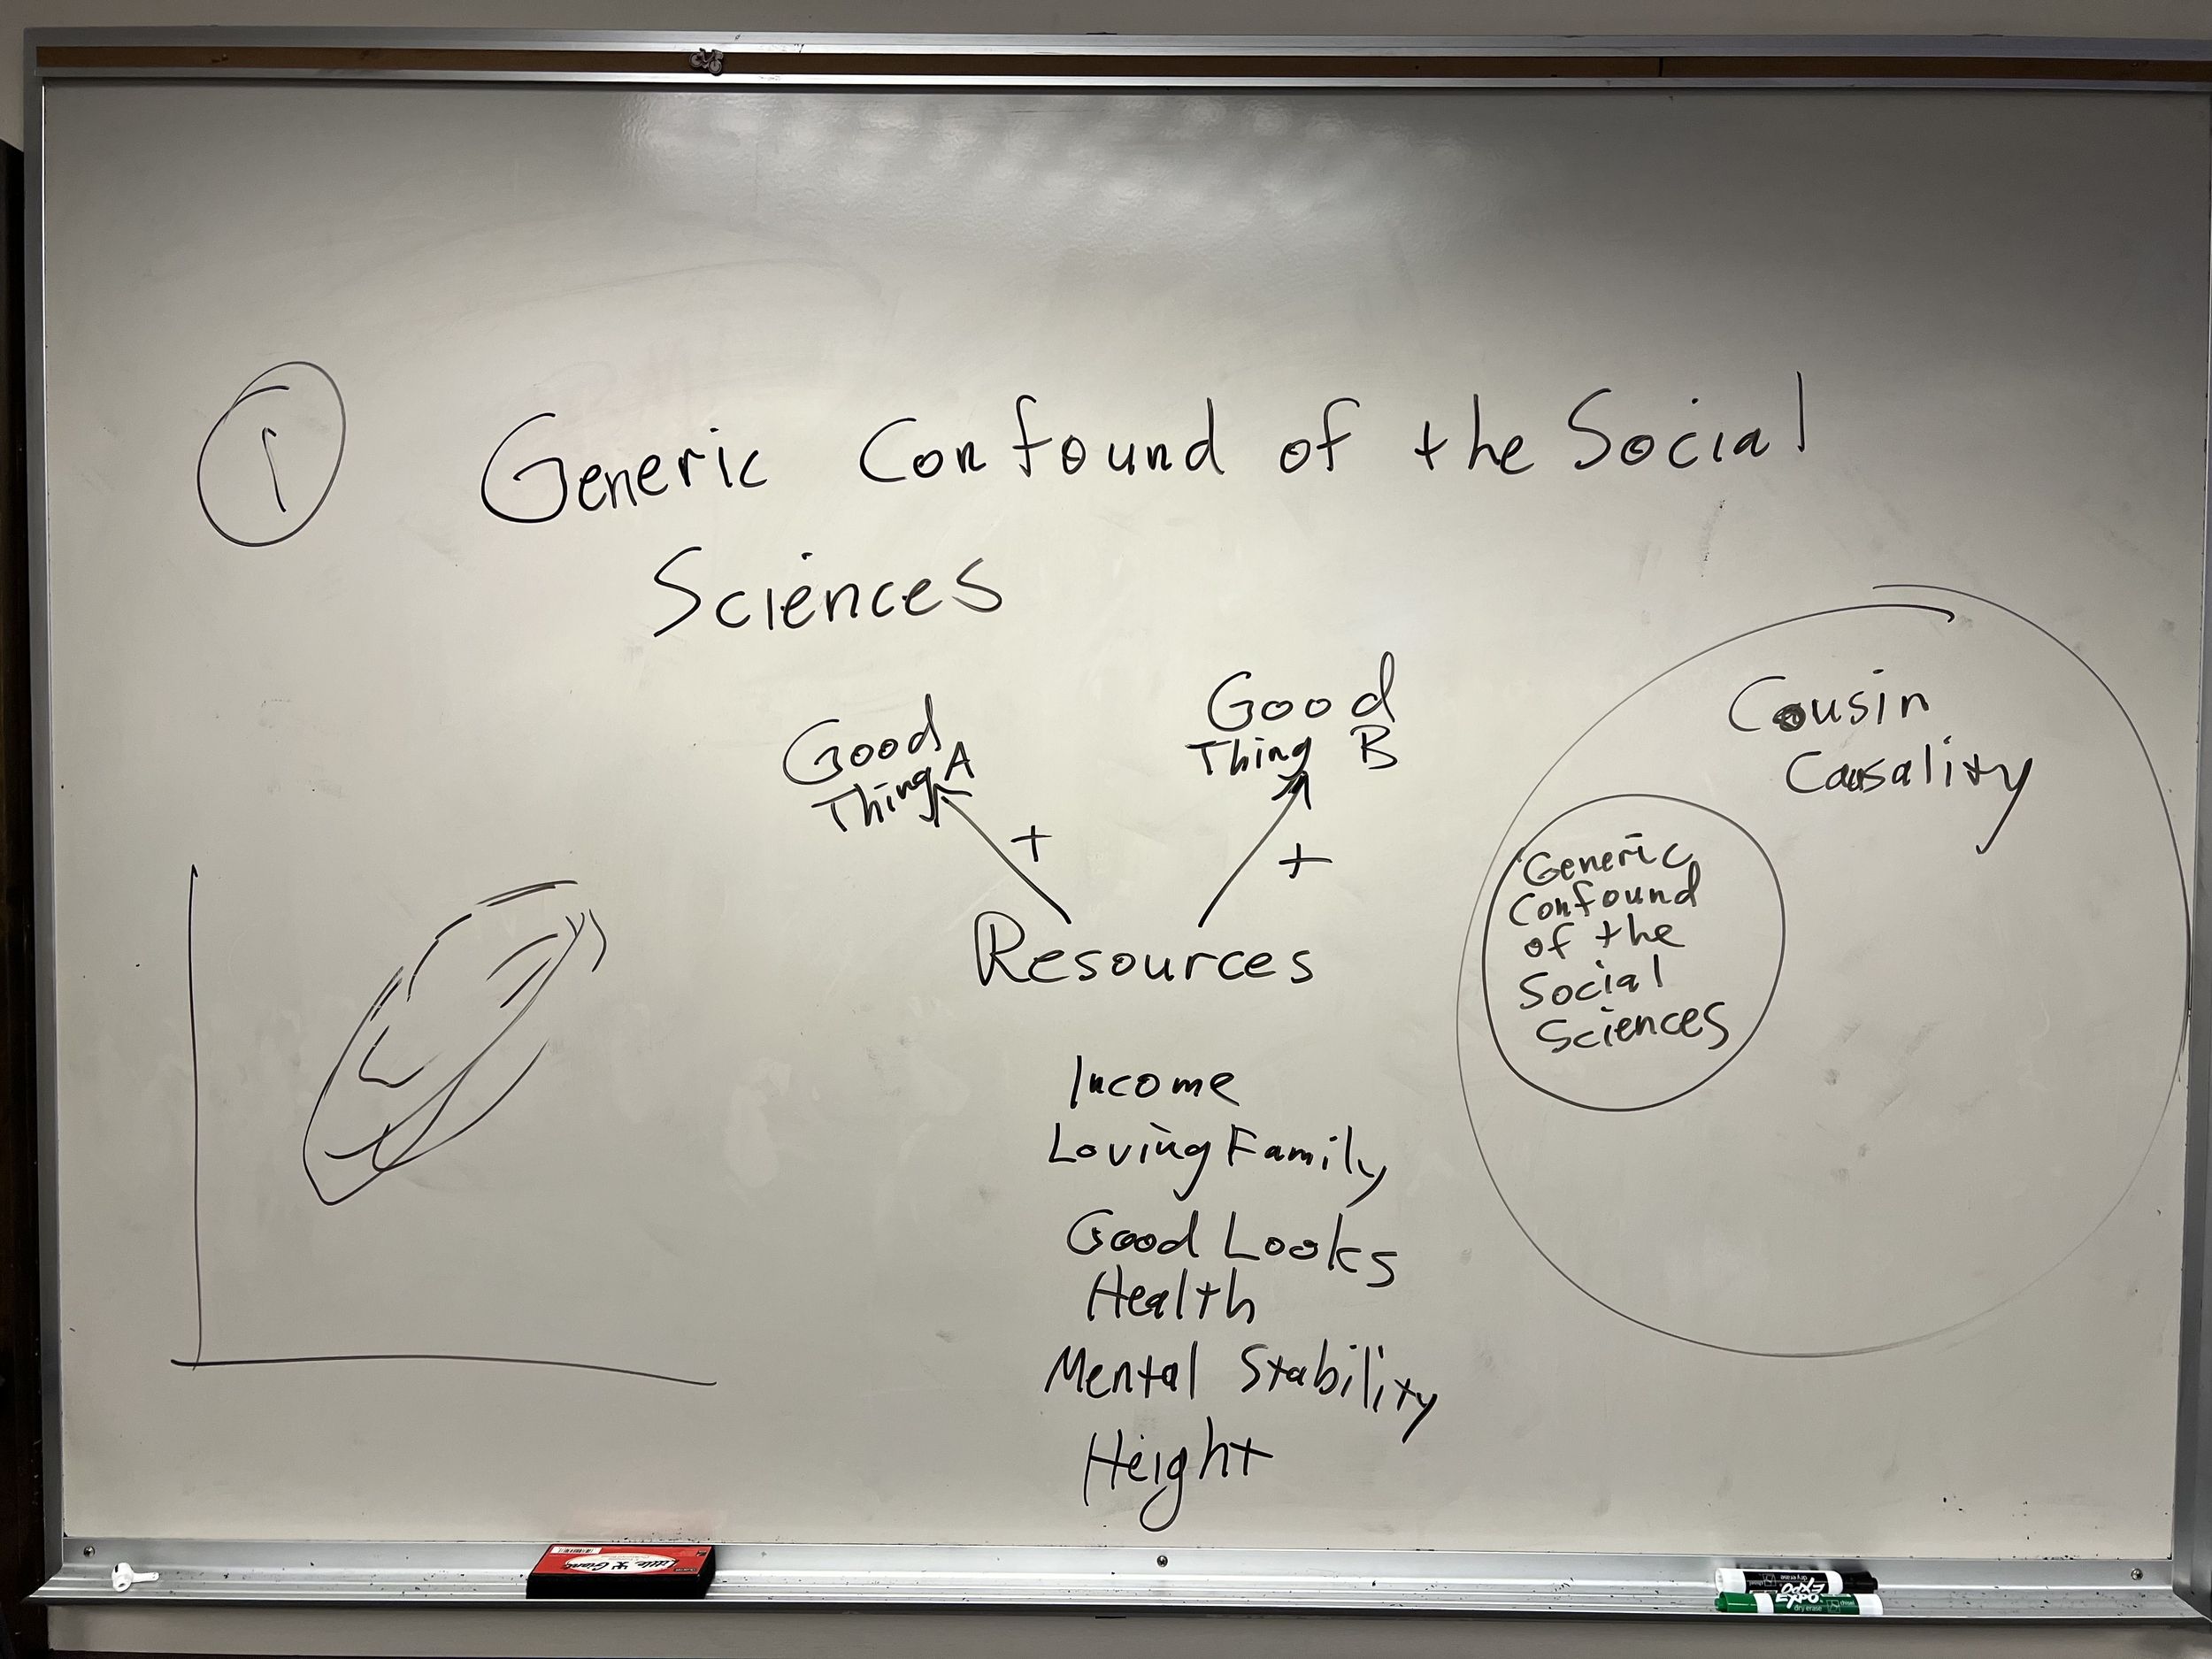 1
Generic Confound of the Social
Sciences
Good
Thing A
+
Good
Thing B
+
Resources
Income
Loving Family
Good Looks
Health
Mental Stability
Height
Cousin
Causality
Generic
Confound
of the
Social
Sciences
Little Giant
EXPO
dry erase
EXPO
dry erase